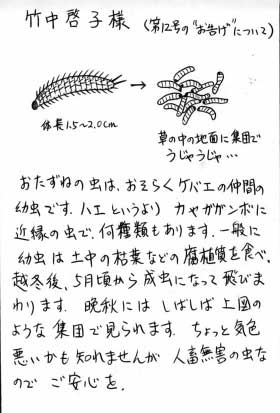 竹中啓子様 (第12号の“お告げ”について)
体長1.5〜2.0cm
草の中の地面に集団で
うじゃうじゃ…
おたずねの虫は、おそらくケバエの仲間の
幼虫です。ハエというより カやガガンボに
近縁の虫で、何種類もあります。一般に
幼虫は土中の枯葉などの腐植質を食べ、
越冬後、5月頃から成虫になって飛びま
わります。晩秋には しばしば上図の
ような集団で見られます。ちょっと気色
悪いかも知れませんが 人畜無害の虫な
ので ご安心を。